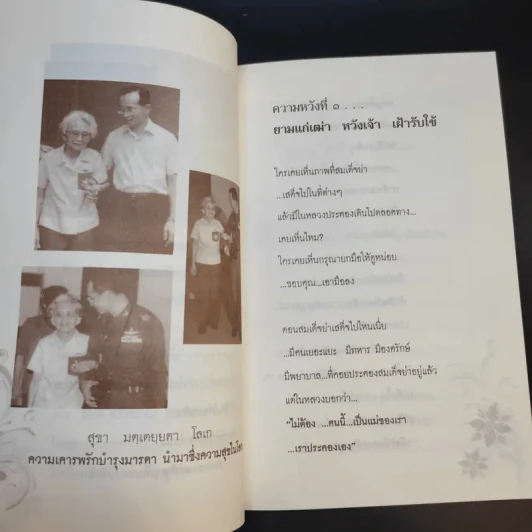 สุขา มตฺเตยฺยตา โลเก
ความเคารพรักบำรุงมารดา นำมาซึ่งความสุขในโลก
ความหวังที่ ๑ . . .
ยามแก่เฒ่า หวังเจ้า เฝ้ารับใช้
ใครเคยเห็นภาพที่สมเด็จย่า
...เสด็จไปในที่ต่างๆ
แล้วมีในหลวงประคองเดินไปตลอดทาง...
เคยเห็นไหม?
ใครเคยเห็นกรุณายกมือให้ดูหน่อย
...ขอบคุณ...เอามือลง
ตอนสมเด็จย่าเสด็จไปไหนเนี่ย
...มีคนเยอะแยะ มีทหาร มีองครักษ์
มีพยาบาล...ที่คอยประคองสมเด็จย่าอยู่แล้ว
แต่ในหลวงบอกว่า...
"ไม่ต้อง ...คนนี้...เป็นแม่ของเรา
...เราประคองเอง"